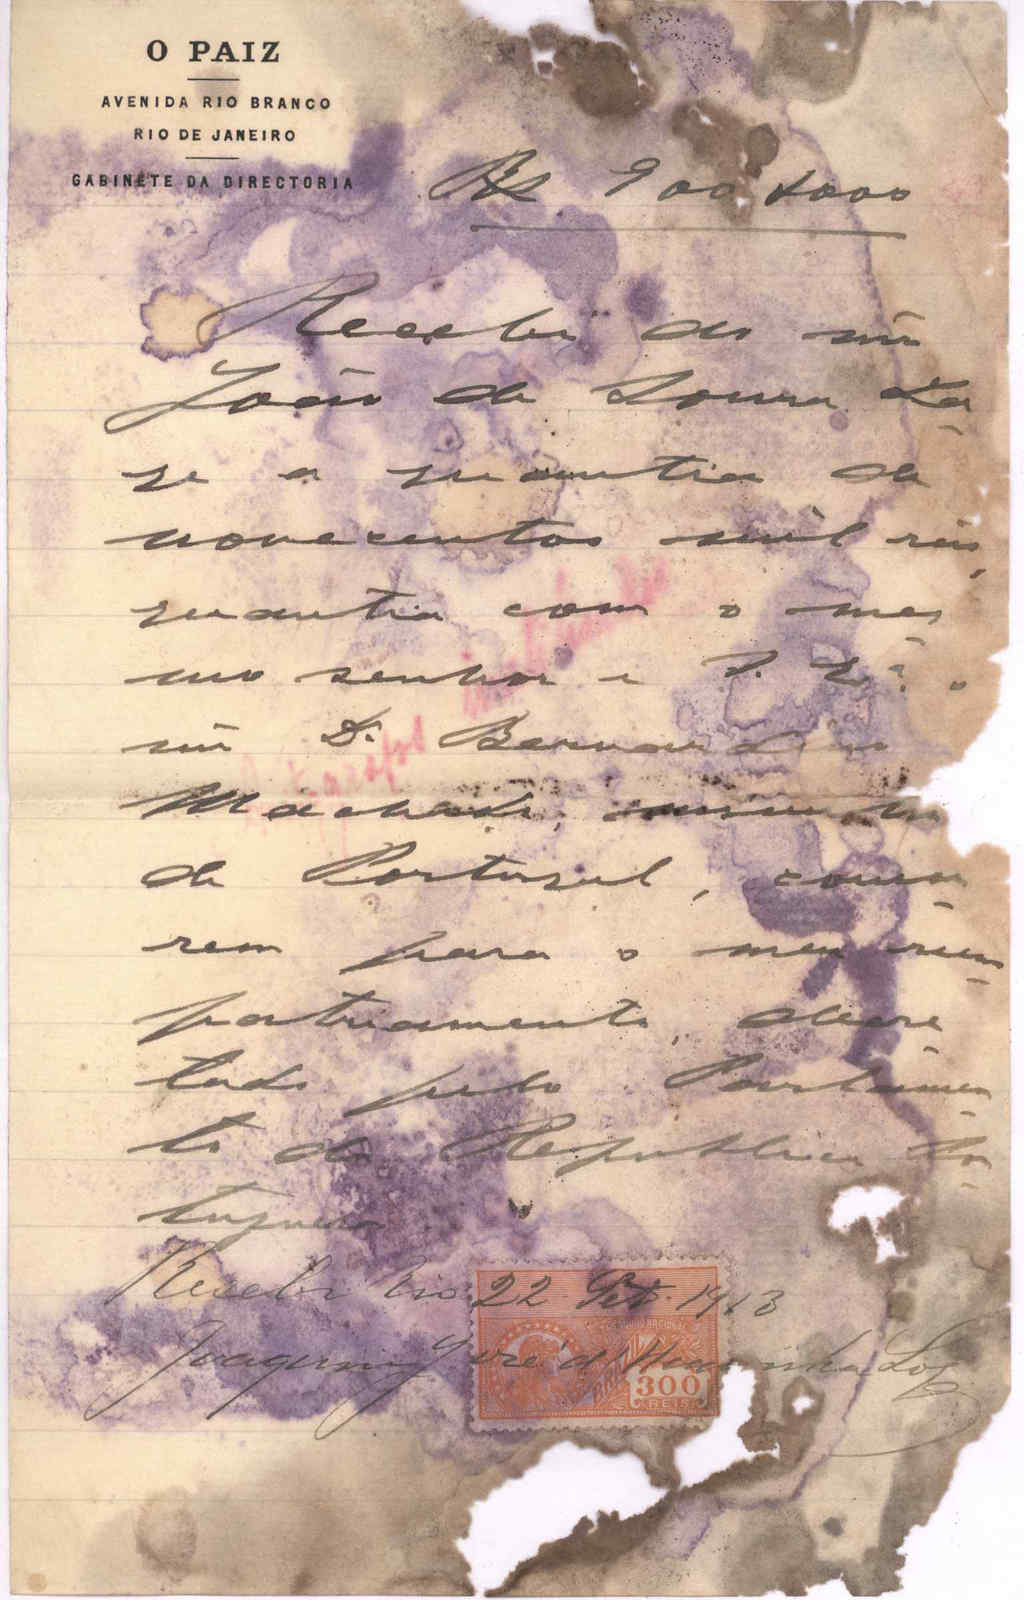 O PAIZ
AVENIDA RIO BRANCO
RIO DE JANEIRO
GABINETE DA DIRECTORIA
Rs 900$000
Recebi do snr
João de Souza La-
ge a quantia de
novecentos mil reis,
quantia com o mes-
mo senhor e S. Exª. o
snr Dr. Bernardino
Machado, ministro
de Portugal, concor-
rem para o meu
patriamento, decre-
tado pelo Parlamen-
to da Republica Por-
tugueza
Recebi Rio 22 Set. 1913
Joaquim José d'
300
REIS